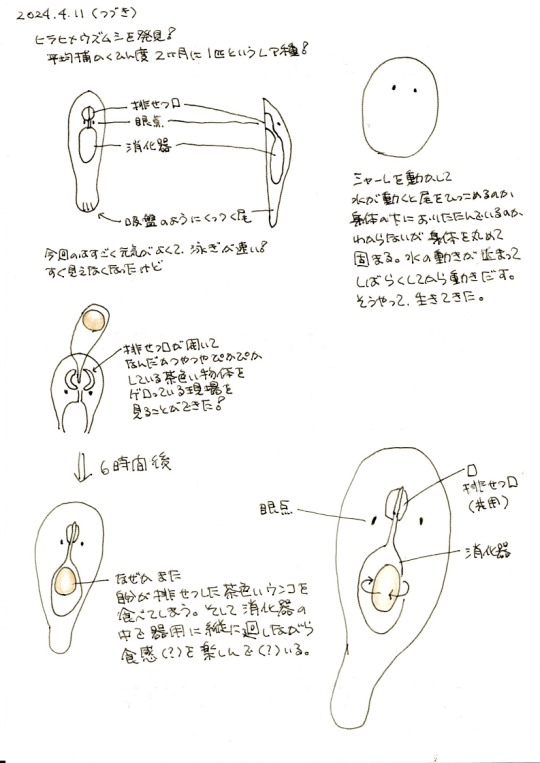 2024.4.11(つづき)
ヒラヒメウズムシを発見!
平均捕のくろん度 2ヶ月に1匹というレア種!
排せつ口
眼点
消化器
吸盤のようにくっつく尾
今回のはすごく元気がよくて、泳ぎが速い!
すぐ見えなくなったけど
シャーレを動かして
水が動くと尾をひっこめるのか
身体の下においたたんでいるのか
わからないが 身体を丸めて
固まる。水の動きが止まって
しばらくしてから動きだす。
そうやって、生きてきた。
排せつ口が開いて
なんだかつやつやぴかぴか
している茶色い物体を
ゲロっている現場を
見ることができた!
6時間後
なぜか また
自分が排せつした茶色いウンコを
食べてしまう。そして消化器の
中で器用に縦に回しながら
食感(?)を楽しんで(?)いる。
口
排せつ口
(共用)
眼点
消化器